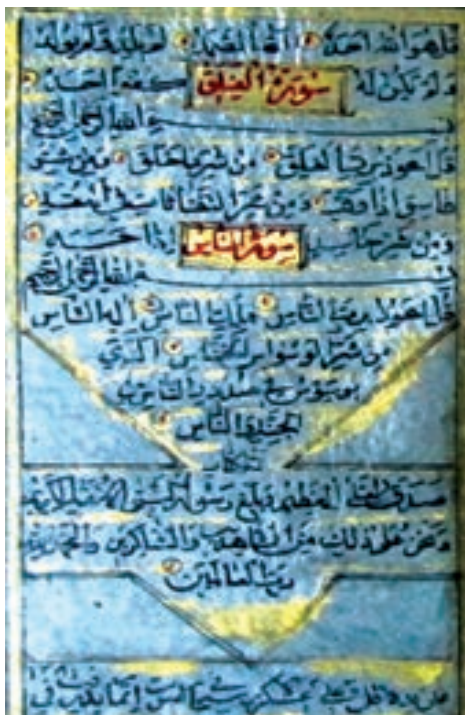 قل هو الله احد الله الصمد لم يلد ولم يولد
ولم يكن له كفوا احد
سورة الفلق
بسم الله الرحمن الرحيم
قل اعوذ برب الفلق من شر ما خلق ومن شر
غاسق اذا وقب ومن شر النفاثات في العقد
ومن شر حاسد اذا حسد
سورة الناس
بسم الله الرحمن الرحيم
قل اعوذ برب الناس ملك الناس اله الناس
من شر الوسواس الخناس الذي
يوسوس في صدور الناس من
الجنة والناس
صدق الله العظيم وبلغ رسوله الكريم
ونحن على ذلك من الشاهدين والشاكرين والحمد لله
رب العالمين